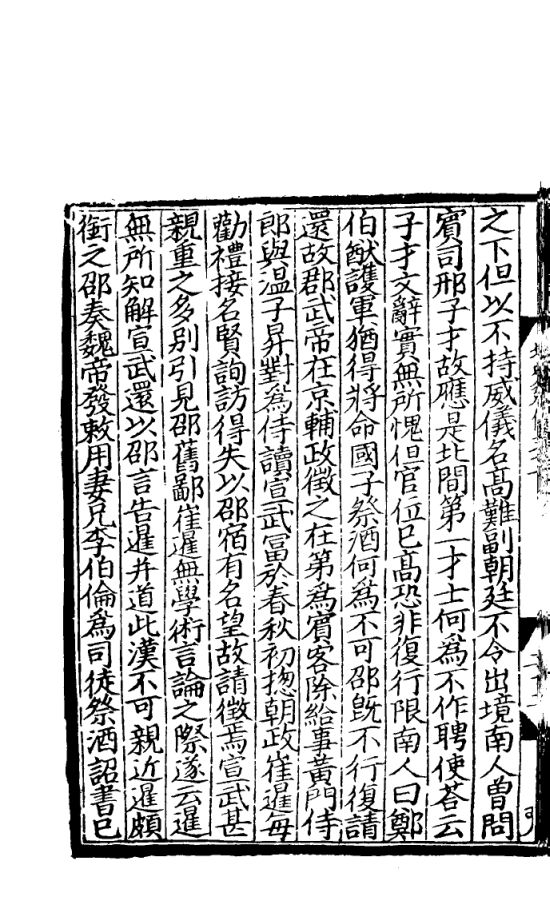 之下但以不持威儀名髙難副朝廷不令出境南人曾問
賓司邢子才故應是北間第一才士何爲不作聘使荅云
子才文辭實無所愧但官位已髙恐非復行限南人曰鄭
伯猷護軍猶得將命國子祭酒何爲不可邵旣不行復請
還故郡武帝在京輔政徵之在第爲賓客除給事黃門侍
郎與温子昇對爲侍讀宣武冨於春秋初揔朝政崔暹每
勸禮接名賢詢訪得失以邵宿有名望故請徵焉宣武甚
親重之多别引見邵舊鄙崔暹無學術言論之際遂云暹
無所知解宣武還以邵言告暹并道此漢不可親近暹頗
銜之邵奏魏帝發敕用妻兄李伯倫爲司徒祭酒詔書已